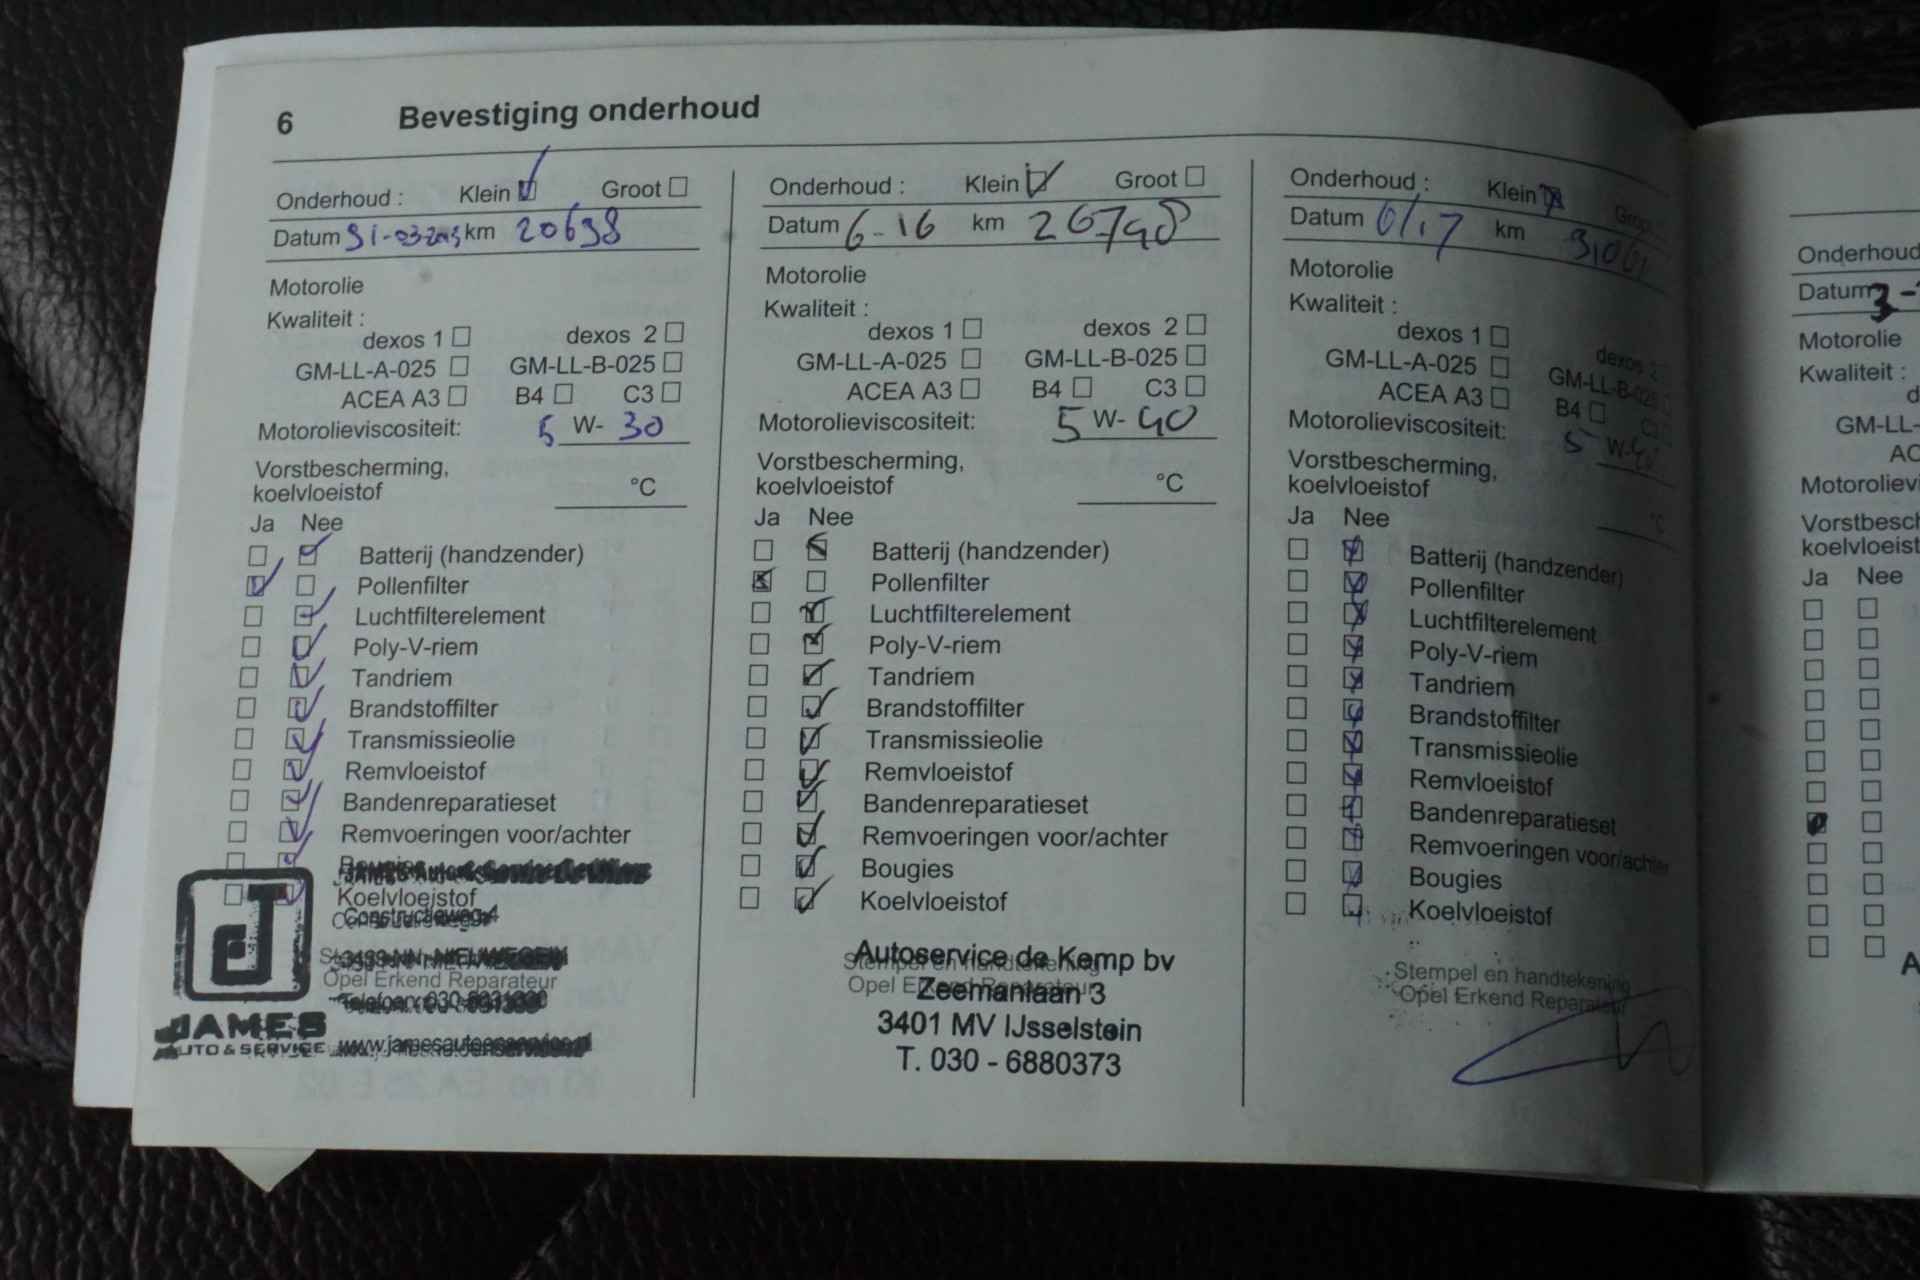 6 Bevestiging onderhoud
Onderhoud : Klein Groot
Datum 31-03-2015 km 20698
Motorolie
Kwaliteit :
dexos 1 dexos 2
GM-LL-A-025 GM-LL-B-025
ACEA A3 B4 C3
Motorolieviscositeit: 5 W- 30
Vorstbescherming,
koelvloeistof °C
Ja Nee
Batterij (handzender)
Pollenfilter
Luchtfilterelement
Poly-V-riem
Tandriem
Brandstoffilter
Transmissieolie
Remvloeistof
Bandenreparatieset
Remvoeringen voor/achter
Bougies
Koelvloeistof
Constructieweg 4
3433 NN NIEUWEGEIN
Opel Erkend Reparateur
JAMES
AUTO & SERVICE
Onderhoud : Klein Groot
Datum 6-16 km 26748
Motorolie
Kwaliteit :
dexos 1 dexos 2
GM-LL-A-025 GM-LL-B-025
ACEA A3 B4 C3
Motorolieviscositeit: 5 W- 40
Vorstbescherming,
koelvloeistof °C
Ja Nee
Batterij (handzender)
Pollenfilter
Luchtfilterelement
Poly-V-riem
Tandriem
Brandstoffilter
Transmissieolie
Remvloeistof
Bandenreparatieset
Remvoeringen voor/achter
Bougies
Koelvloeistof
Autoservice de Kemp bv
Stempel en handtekening
Opel Erkend Reparateur
Zeemanlaan 3
3401 MV IJsselstein
T. 030 - 6880373
Onderhoud : Klein Groot
Datum 6/17 km 31061
Motorolie
Kwaliteit :
dexos 1 dexos 2
GM-LL-A-025 GM-LL-B-025
ACEA A3 B4 C3
Motorolieviscositeit: 5 W-40
Vorstbescherming,
koelvloeistof °C
Ja Nee
Batterij (handzender)
Pollenfilter
Luchtfilterelement
Poly-V-riem
Tandriem
Brandstoffilter
Transmissieolie
Remvloeistof
Bandenreparatieset
Remvoeringen voor/achter
Bougies
Koelvloeistof
Stempel en handtekening
Opel Erkend Reparateur
Onderhoud
Datum 3-
Motorolie
Kwaliteit :
d
GM-LL-
AC
Motorolievi
Vorstbesch
koelvloeist
Ja Nee
A